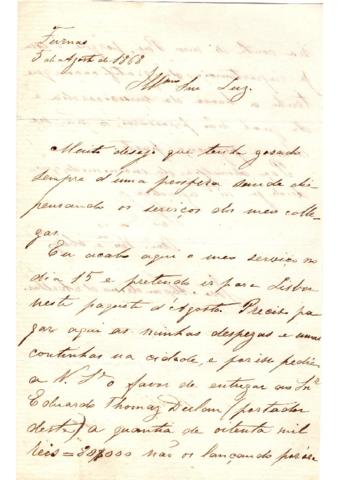 Furnas
5 de Agosto de 1868
Illmo Snr Luz.
Muito desejo que tenha gosado
sempre d'uma prospera saude dis
pensando os serviços dos meus colle
gas.
Eu acabo aqui o meu serviço no
dia 15 e pretendo ir para Lisboa
neste paquete d'Agosto. Preciso pa
gar aqui as minhas despezas e umas
continhas na cidade, e por isso pedia
a V. Sa o favor de entregar ao Snr
Eduardo Thomaz portador
desta) a quantia de oitenta mil
reis = 80$000 não os lançando porém